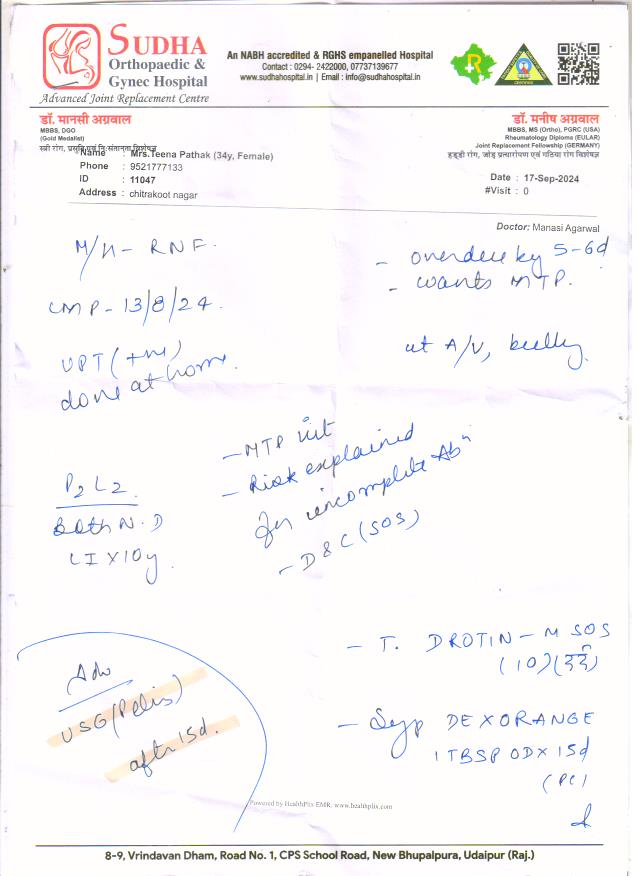 SUDHA
Orthopaedic &
Gynec Hospital
Advanced Joint Replacement Centre
An NABH accredited & RGHS empanelled Hospital
Contact : 0294- 2422000, 07737139677
www.sudhahospital.in | Email : info@sudhahospital.in
डॉ. मानसी अग्रवाल
MBBS, DGO
(Gold Medalist)
स्त्री रोग, प्रसूति एवं निःसंतानता विशेषज्ञ
डॉ. मनीष अग्रवाल
MBBS, MS (Ortho), PGRC (USA)
Rheumatology Diploma (EULAR)
Joint Replacement Fellowship (GERMANY)
हड्डी रोग, जोड़ प्रत्यारोपण एवं गठिया रोग विशेषज्ञ
Name : Mrs.Teena Pathak (34y, Female)
Phone : 9521777133
ID : 11047
Address : chitrakoot nagar
Date : 17-Sep-2024
#Visit : 0
Doctor: Manasi Agarwal
M/H - RNF.
- overdue by 5-6d
- wants MTP.
LMP - 13/8/24.
UPT (+ve)
done at home.
ut A/V, bulky
- MTP kit
- Risk explained
for incomplete Abn
- D & C (SOS)
P2 L2
Both N.D
LI X 10y
- T. DROTIN - M SOS
(10) (दर्द)
Adv
USG (Pelvis)
after 15d.
- Syp DEXORANGE
1 TBSP OD X 15d
(PC)
Powered by HealthPlix EMR. www.healthplix.com
8-9, Vrindavan Dham, Road No. 1, CPS School Road, New Bhupalpura, Udaipur (Raj.)